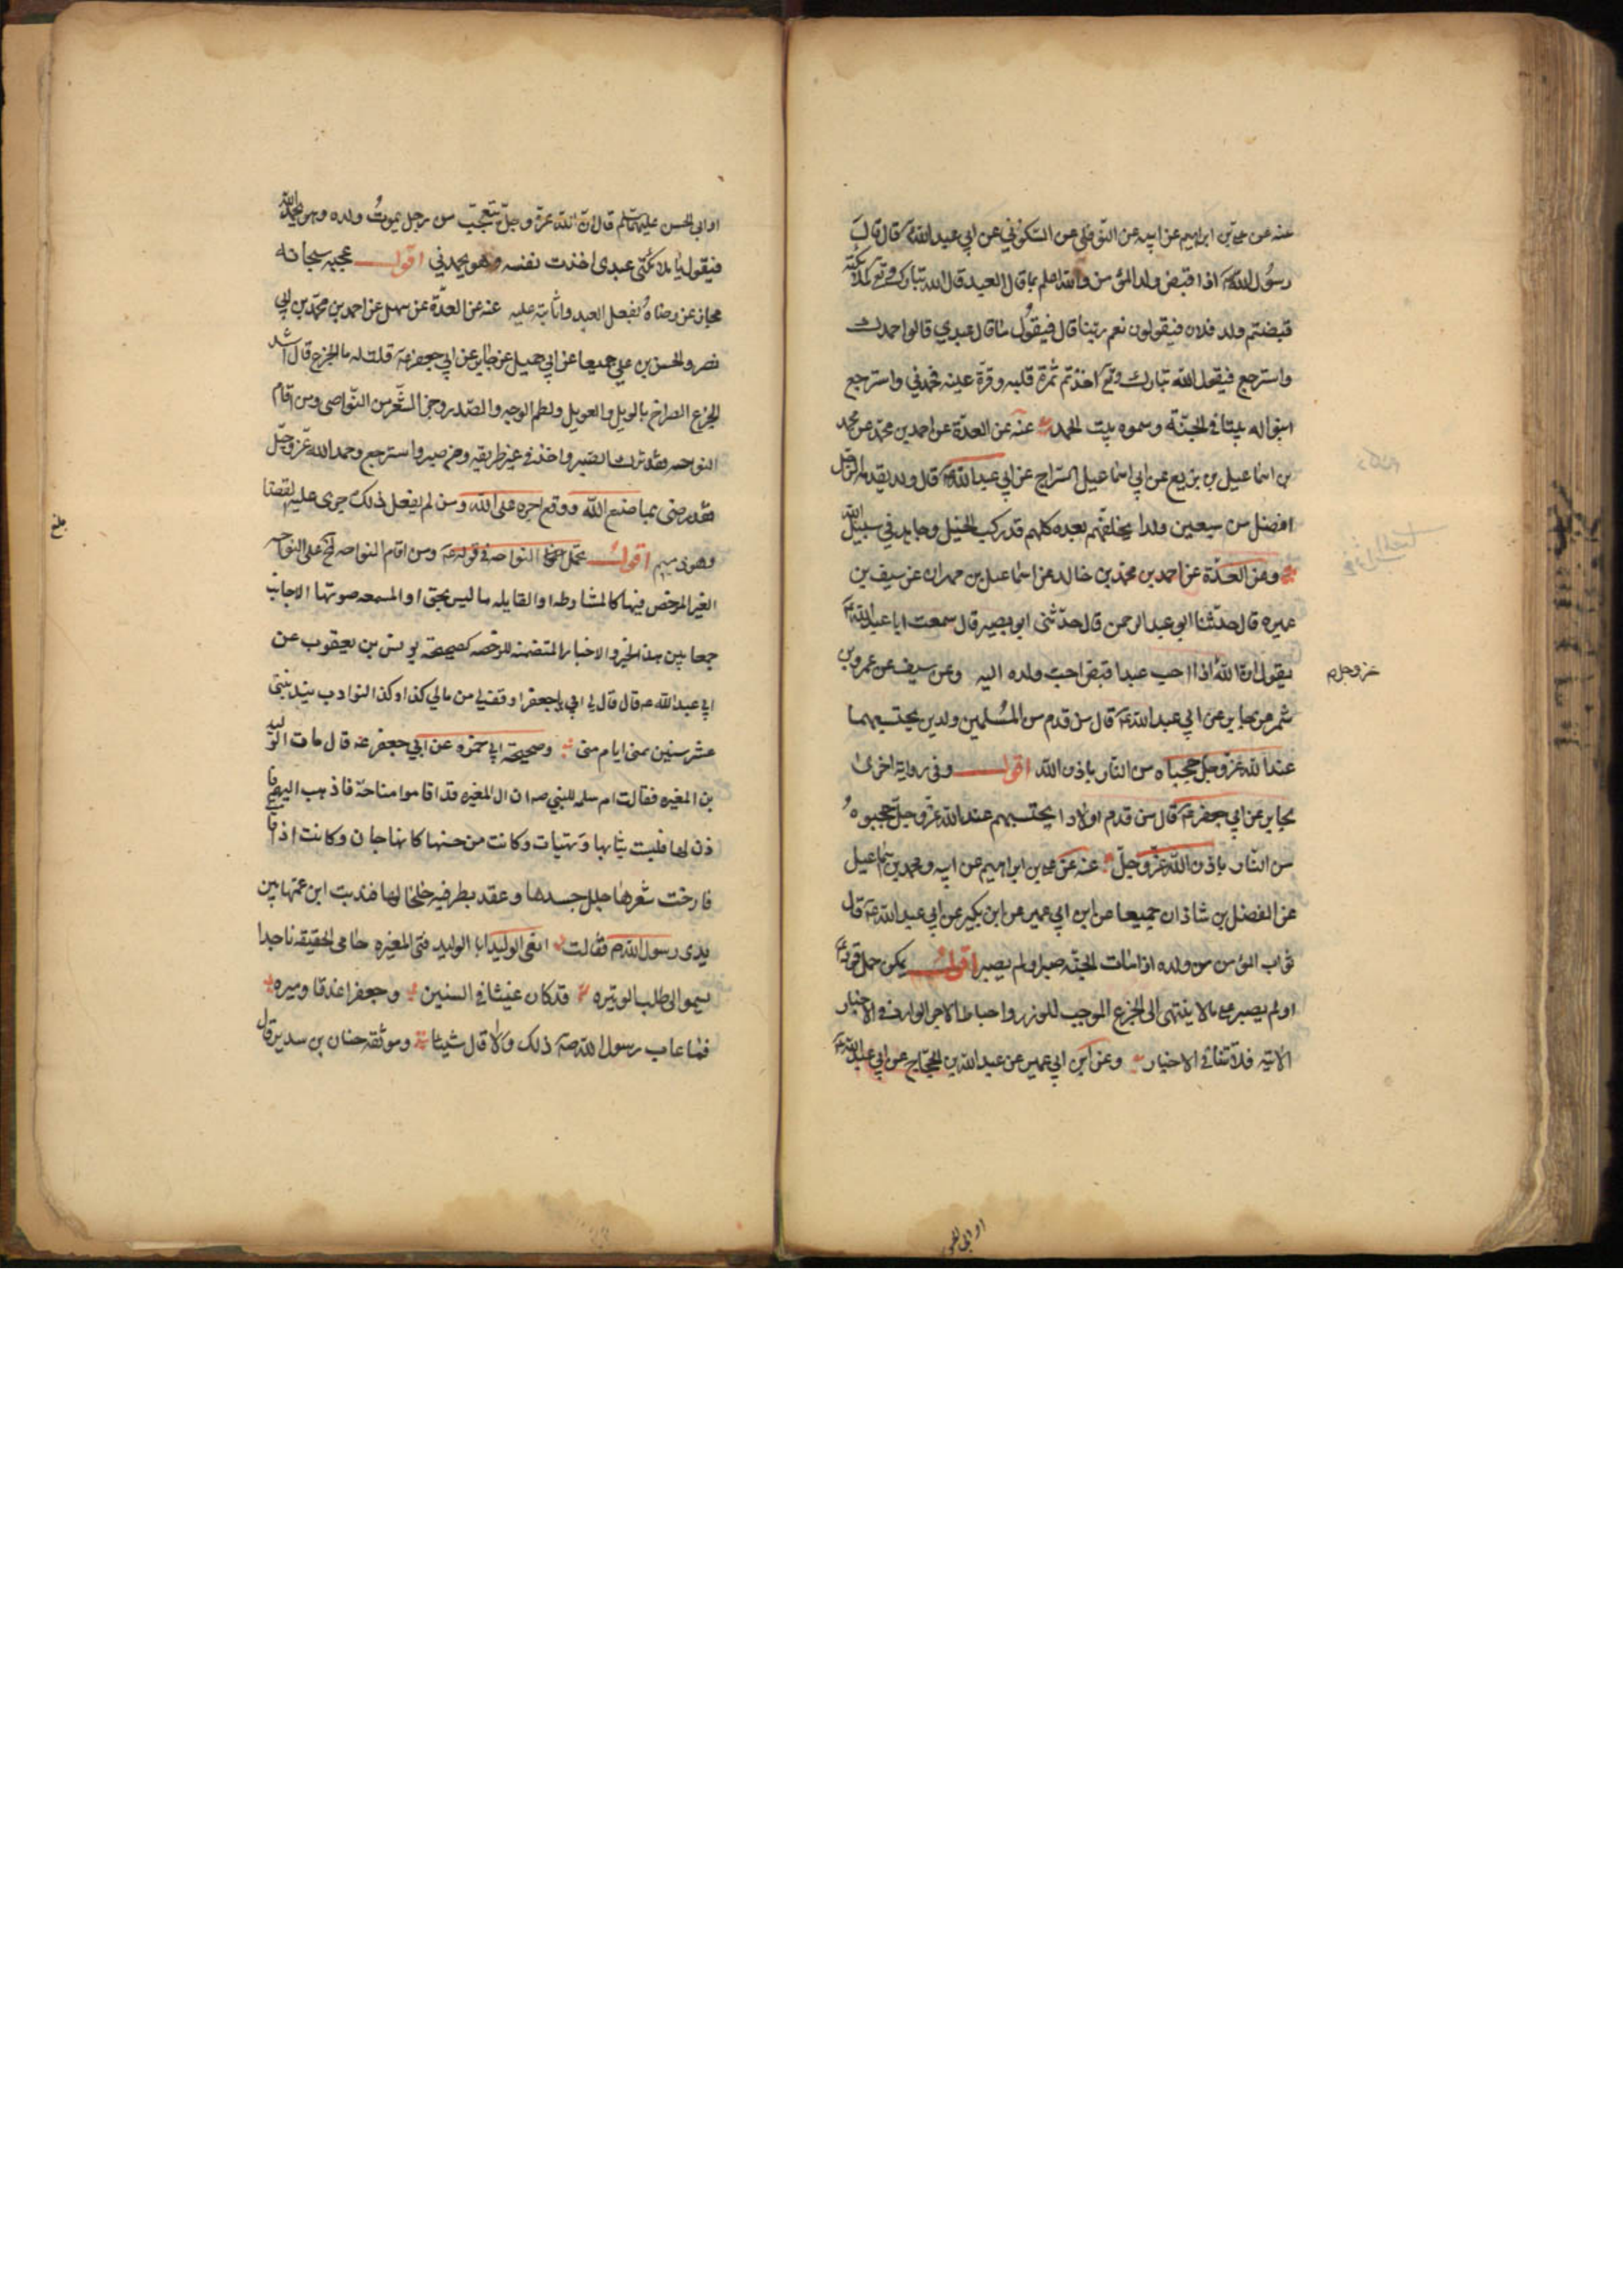 عنه عن علي بن ابراهيم عن ابيه عن النوفلي عن السكوني عن ابي عبد الله ع قال قال
رسول الله ص اذا قبض ولد المؤمن والله اعلم بما قال العبد قال الله تبارك وتع لملائكته
قبضتم ولد فلان فيقولون نعم ربنا قال فيقول ما قال عبدي قالوا حمدك
واسترجع فيقول الله تبارك وتع اخذتم ثمرة قلبه وقرة عينه فحمدني واسترجع
ابنوا له بيتا في الجنة وسموه بيت الحمد عنه عن العدة عن احمد بن محمد عن محمد
بن اسماعيل بن بزيع عن ابي اسماعيل السراج عن ابي عبد الله ع قال ولد يقدمه الرجل
افضل من سبعين ولدا يخلفهم بعده كلهم قد ركب الخيل وجاهد في سبيل الله
وعن العدة عن احمد بن محمد بن خالد عن اسماعيل بن مهران عن سيف بن
عميره قال حدثنا ابو عبد الرحمن قال حدثنى ابو بصير قال سمعت ابا عبد الله ع
يقول ان الله اذا احب عبدا قبض احب ولده اليه وعن سيف عن عمرو بن
عز وجل م
شمر عن جابر عن ابي عبد الله ع قال من قدم من المسلمين ولدين يحتسبهما
عند الله عز وجل حجباه من النار باذن الله اقول وفي رواية اخرى
لجابر عن ابي جعفر ع قال من قدم اولادا يحتسبهم عند الله عز وجل حجبوه
من النار باذن الله عز وجل عنه عن علي بن ابراهيم عن ابيه ومحمد بن اسماعيل
عن الفضل بن شاذان جميعا عن ابن ابي عمير عن ابن بكير عن ابي عبد الله ع قال
ثواب المؤمن من ولده اذا مات الجنة صبر او لم يصبر اقول يمكن حمل قوله ع
او لم يصبر على ما لا ينتهى الى الجزع الموجب للوزر واحباط الاجر الوارد في الاخبار
الاتيه فلا تنافي الاخبار وعن ابن ابي عمير عن عبد الله بن الحجاج عن ابي عبد الله ع
او ابي الحسن
او ابي الحسن عليهما السلم قال ان الله عز وجل يتعجب من رجل يموت ولده وهو يحمد الله
فيقول يا ملائكتى عبدى اخذت نفسه وهو يحمدني اقول عجبه سبحانه
مجاز عن رضاه بفعل العبد واثابته عليه عنه عن العدة عن سهل عن احمد بن محمد بن ابي
نصر والحسن بن علي جميعا عن ابي جميل عن جابر عن ابي جعفر ع قال قلت له ما الجزع قال اشد
الجزع الصراخ بالويل والعويل ولطم الوجه والصدر وجز الشعر من النواصى ومن اقام
النواحه فقد ترك الصبر واخذ في غير طريقه ومن صبر واسترجع وحمد الله عز وجل
فقد رضى بما صنع الله ووقع اجره على الله ومن لم يفعل ذلك جرى عليه القضا
وهو ذميم اقول تحمل النواحه في قوله ع ومن اقام النواحه الخ على النواحه
الغير المرخص فيها كالمشارطه او القايله ما ليس بحق او المسمعه صوتها الاجانب
جمعا بين هذا الخبر والاخبار المتضمنه للرخصه كصحيحة يونس بن يعقوب عن
ابي عبد الله ع قال قال لي ابي يا جعفر اوقف لي من مالي كذا وكذا النوادب تندبنى
عشر سنين بمنى ايام منى وصحيحة ابي حمزه عن ابي جعفر ع قال مات الوليد
بن المغيره فقالت ام سلمه للنبي ص ان ال المغيره قد اقاموا مناحة فاذهب اليهم فا
ذن لها فلبست ثيابها وتهيات وكانت من حسنها كانها جان وكانت اذا قامت
فارخت شعرها جلل جسدها وعقد بطرفيه خلخالها فندبت ابن عمها بين
يدى رسول الله ص فقالت انعى الوليد ابا الوليد فتى المغيره حامى الحقيقه ماجدا
يسمو الى طلب الوتيره قد كان غيثا في السنين وجعفرا غدقا وميره
فما عاب رسول الله ص ذلك ولا قال شيئا وموثقه حنان بن سدير قال